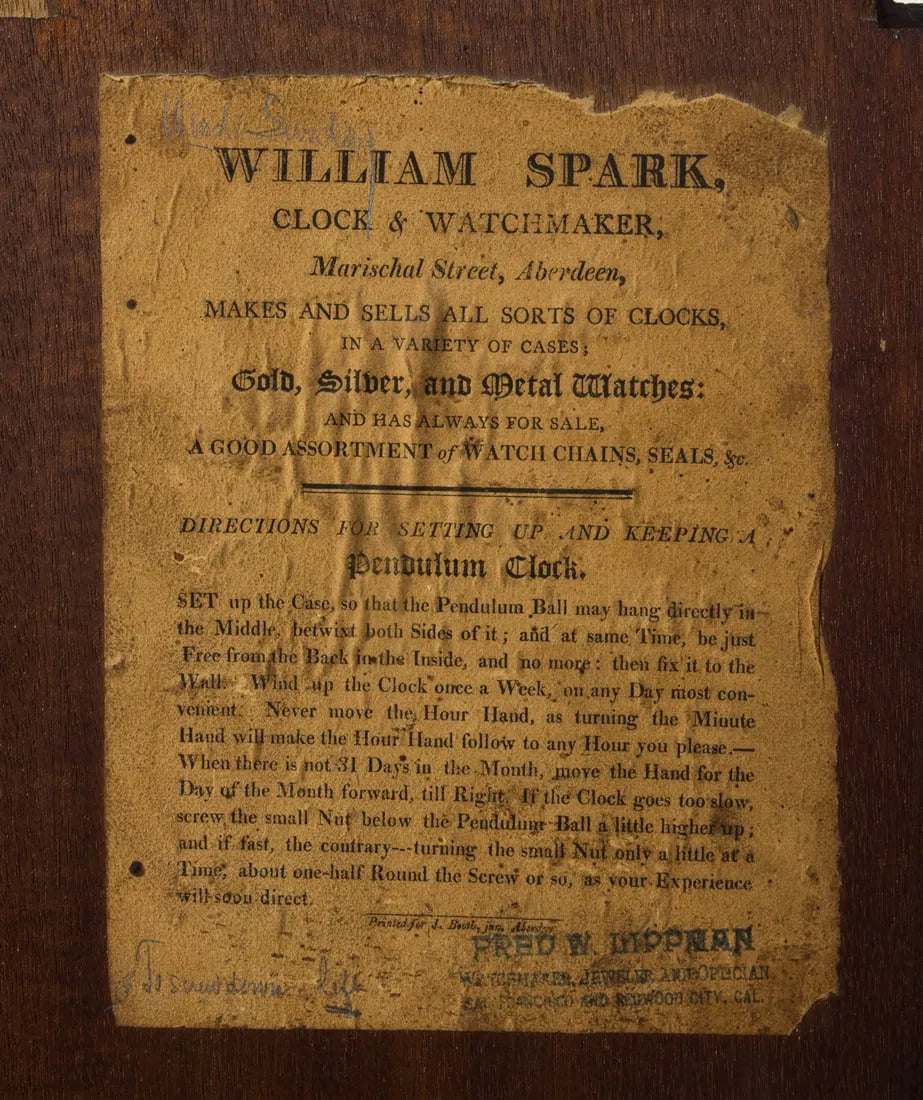 Wind Sunday
WILLIAM SPARK,
CLOCK & WATCHMAKER,
Marischal Street, Aberdeen,
MAKES AND SELLS ALL SORTS OF CLOCKS,
IN A VARIETY OF CASES;
Gold, Silver, and Metal Watches:
AND HAS ALWAYS FOR SALE,
A GOOD ASSORTMENT of WATCH CHAINS, SEALS, &c.
DIRECTIONS FOR SETTING UP AND KEEPING A
Pendulum Clock.
SET up the Case, so that the Pendulum Ball may hang directly in
the Middle, betwixt both Sides of it; and at same Time, be just
Free from the Back in the Inside, and no more: then fix it to the
Wall. Wind up the Clock once a Week, on any Day most con-
venient. Never move the Hour Hand, as turning the Minute
Hand will make the Hour Hand follow to any Hour you please.—
When there is not 31 Days in the Month, move the Hand for the
Day of the Month forward, till Right. If the Clock goes too slow,
screw the small Nut below the Pendulum Ball a little higher up;
and if fast, the contrary---turning the small Nut only a little at a
Time, about one-half Round the Screw or so, as your Experience
will soon direct.
Printed for J. Booth, jun. Aberdeen
FRED W. LIPPMAN
WATCHMAKER, JEWELER AND OPTICIAN
SAN FRANCISCO AND REDWOOD CITY, CAL.
To screw down left